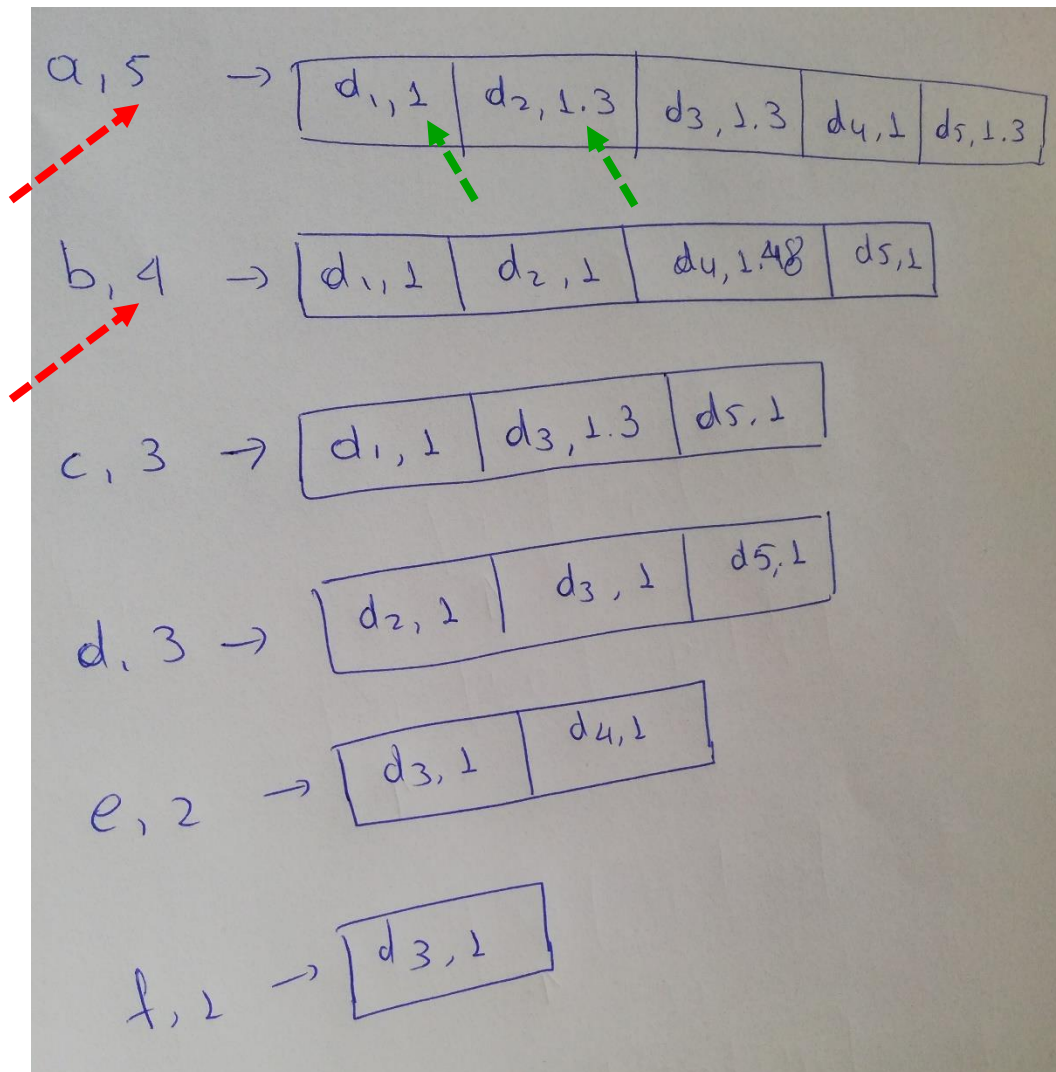 a, 5 → d1, 1 | d2, 1.3 | d3, 1.3 | d4, 1 | d5, 1.3
b, 4 → d1, 1 | d2, 1 | d4, 1.48 | d5, 1
c, 3 → d1, 1 | d3, 1.3 | d5, 1
d, 3 → d2, 1 | d3, 1 | d5, 1
e, 2 → d3, 1 | d4, 1
f, 1 → d3, 1